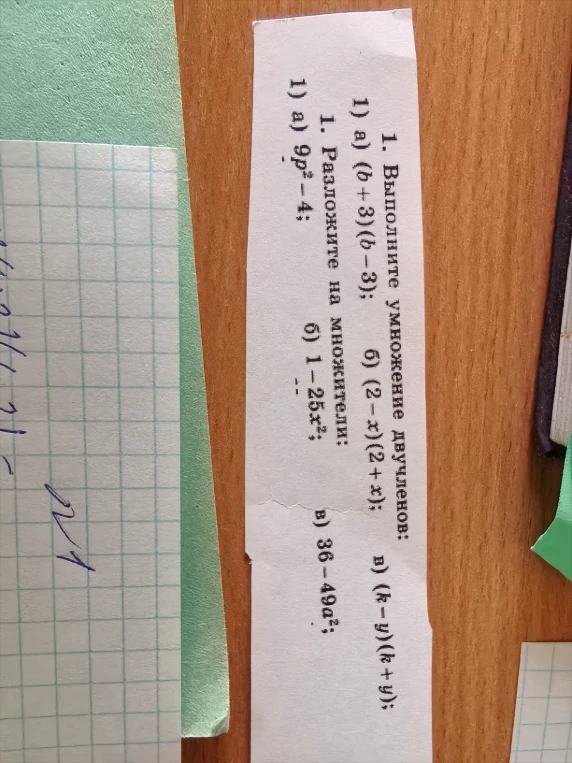 1. Выполните умножение двучленов:
1) а) (b + 3)(b − 3); б) (2 − x)(2 + x); в) (k − y)(k + y);
1. Разложите на множители:
1) а) 9p² − 4; б) 1 − 25x²; в) 36 − 49a²;
№1